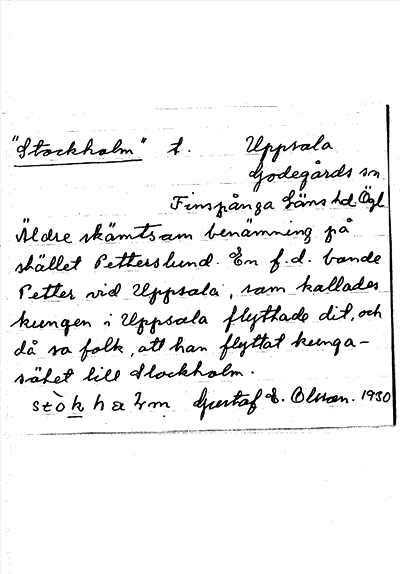 "Stockholm" t. Uppsala
Godegårds sn
Finspånga läns hd. Ögl
Äldre skämtsam benämning på
stället Petterslund. En f.d. bonde
Petter vid Uppsala, som kallades
kungen i Uppsala flyttade dit, och
då sa folk, att han flyttat kunga-
sätet till Stockholm.
Gustaf E. Olsson. 1930